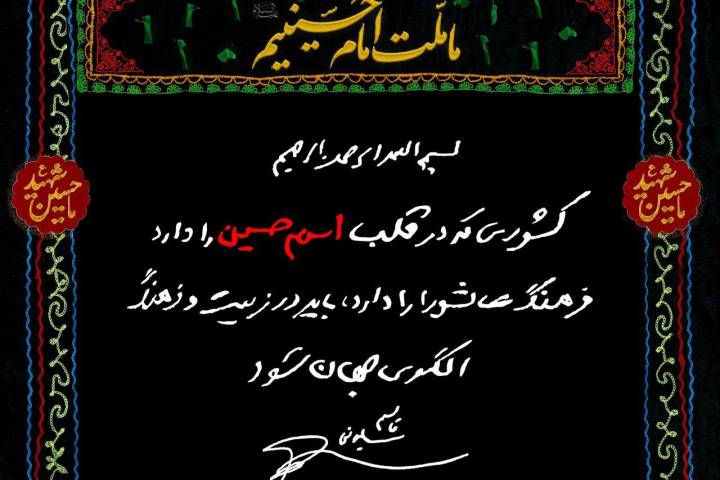 ما ملّت امام حسینیم
بسم الله الرحمن الرحیم
کشوری که در قلب اسم حسین را دارد
فرهنگ عاشورا را دارد، باید در تربیت و فرهنگ
الگوی جهان شود
قاسم سلیمانی
حسین شهید ما
حسین شهید ما